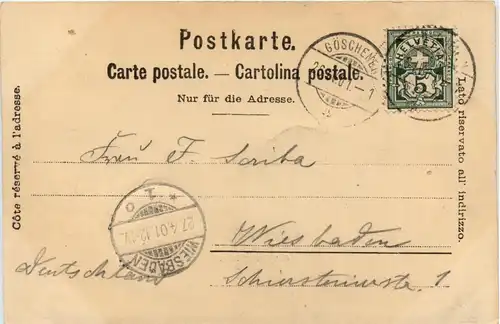 Postkarte.
Carte postale. — Cartolina postale.
Nur für die Adresse.
Côte réservé à l'adresse.
Lato riservato all' indirizzo.
GÖSCHENEN
HELVETIA
5
Frau F. Scriba
Wiesbaden
Schiersteinerstr. 1
Deutschland
WIESBADEN
27.4.01. 12-1V.
* 1 c